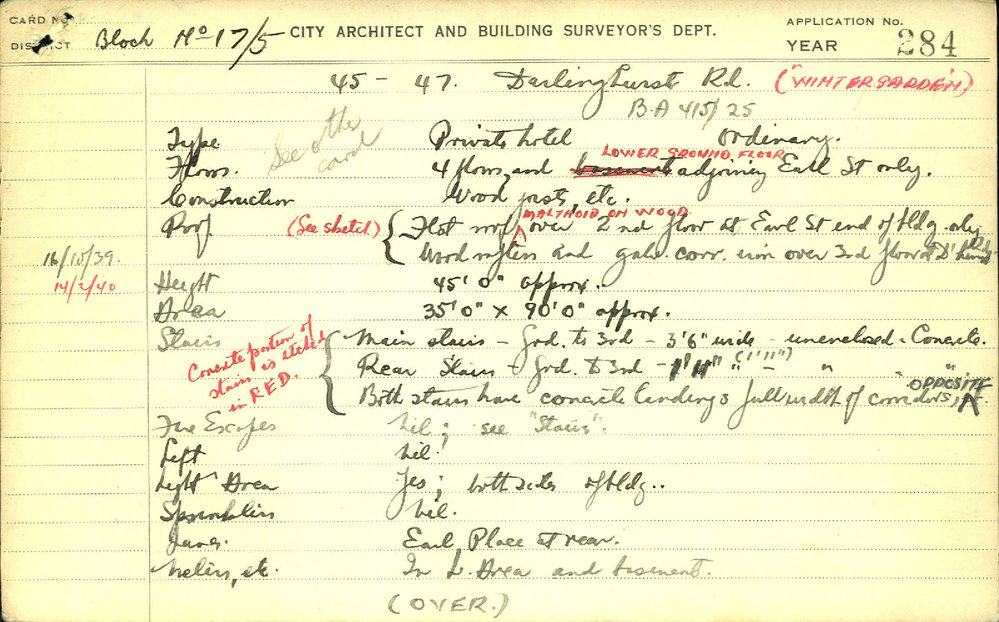 CARD No. CITY ARCHITECT AND BUILDING SURVEYOR'S DEPT. APPLICATION No.
DISTRICT Block No 17/5 YEAR 284
45 - 47. Darlinghurst Rd. ("WINTERGARDEN")
B.A 415/25
See other card
Type Private hotel Ordinary.
Floors. 4 floors, and basement LOWER GROUND FLOOR adjoining Earl St only.
Construction Wood joists, etc.
Roof (See sketch) { Flat roof MALTHOID ON WOOD over 2nd floor at Earl St end of bldg only
16/10/39. Wood rafters and galv. corr. iron over 3rd floor at D'hurst Rd
14/2/40 Height 45' 0" approx.
Area 35' 0" x 90' 0" approx.
Stairs { Main stairs - Grd. to 3rd - 3'6" wide - unenclosed - Concrete.
Concrete portion of stairs is etched in RED.
Rear Stairs - Grd. to 3rd - 1'11" (1'11") " - " "
Both stairs have concrete landings full width of corridors, OPPOSITE
Fire Escapes Nil; see "Stairs".
Lift Nil.
Light Area Yes; both sides of bldg..
Sprinklers Nil.
Lanes. Earl Place at rear.
Meters, etc. In L. Area and basement.
(OVER.)